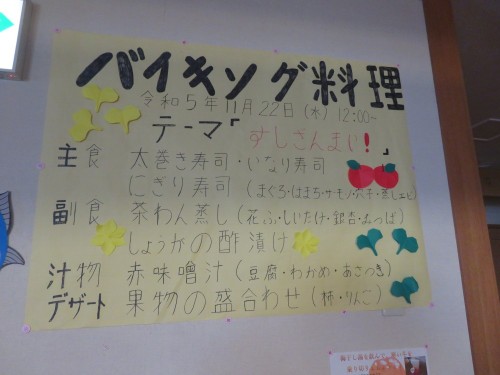 バイキング料理
令和5年11月22日(水)12:00~
テーマ「すしざんまい!」
主食 太巻き寿司・いなり寿司
にぎり寿司(まぐろ・はまち・サーモン・穴子・蒸しエビ)
副食 茶わん蒸し(花ふ・しいたけ・銀杏・みつば)
しょうがの酢漬け
汁物 赤味噌汁(豆腐・わかめ・あさつき)
デザート 果物の盛合わせ(柿・りんご)